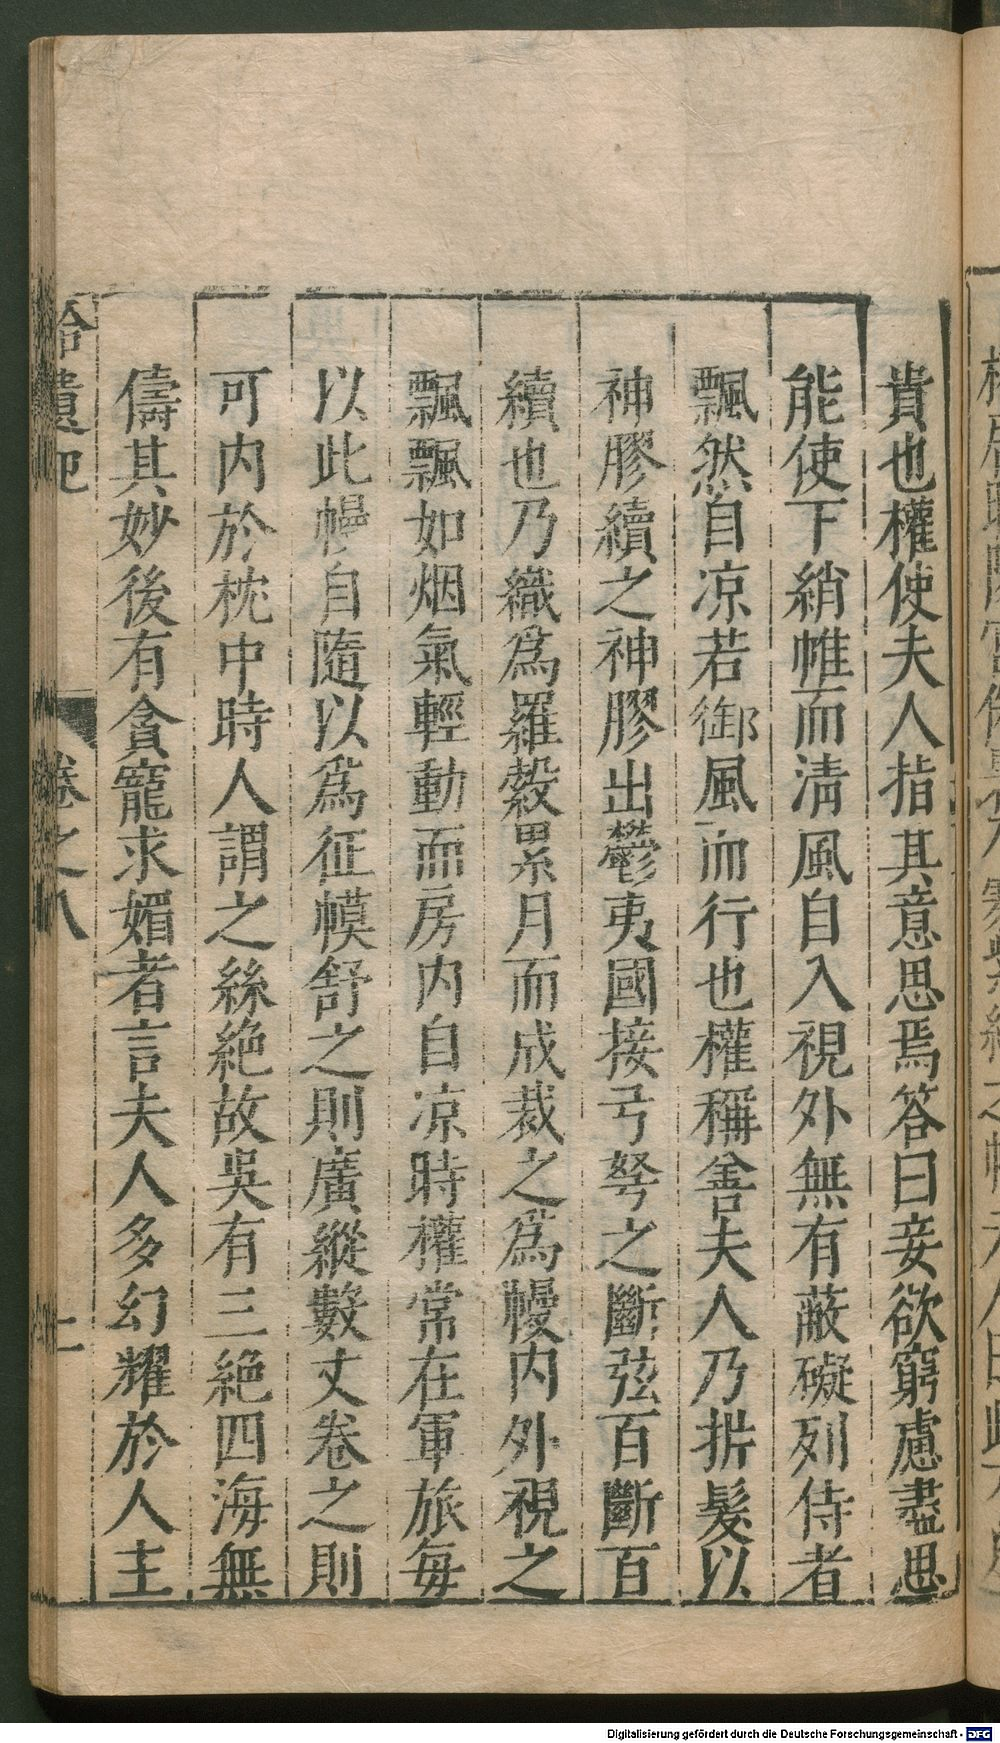 貴也權使夫人指其意思焉答曰妾欲窮慮盡思
能使下綃帷而淸風自入視外無有蔽礙列侍者
飄然自凉若御風而行也權稱善夫人乃折髮以
神膠續之神膠出鬱夷國接弓弩之斷弦百斷百
續也乃織爲羅縠累月而成裁之爲幔内外視之
飄飄如烟氣輕動而房内自凉時權常在軍旅每
以此幔自隨以爲征幙舒之則廣縱數丈卷之則
可内於枕中時人謂之絲絶故吳有三絶四海無
儔其妙後有貪寵求媚者言夫人多幻耀於人主
拾遺記
卷之八
Digitalisierung gefördert durch die Deutsche Forschungsgemeinschaft - DFG